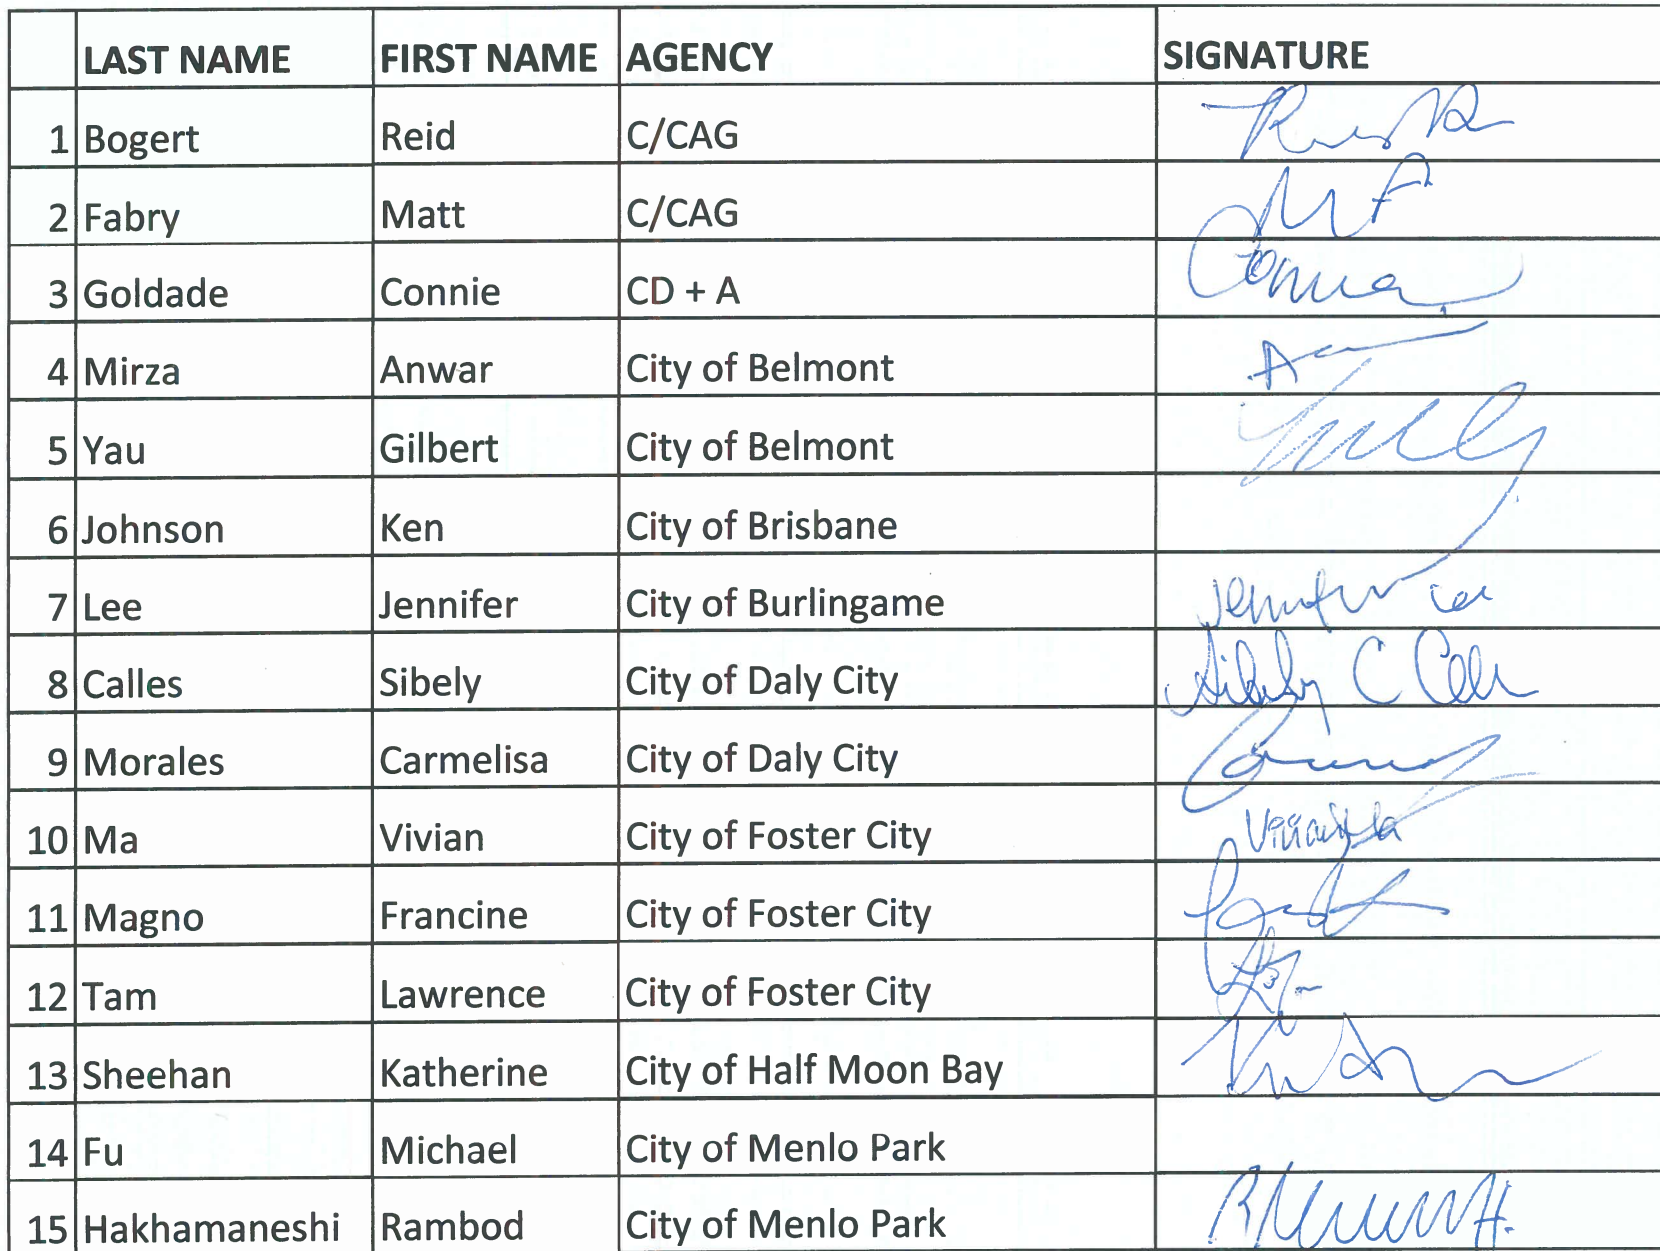 LAST NAME FIRST NAME AGENCY SIGNATURE
1 Bogert Reid C/CAG
2 Fabry Matt C/CAG MF
3 Goldade Connie CD + A
4 Mirza Anwar City of Belmont
5 Yau Gilbert City of Belmont
6 Johnson Ken City of Brisbane
7 Lee Jennifer City of Burlingame Jennifer Lee
8 Calles Sibely City of Daly City Sibely C
9 Morales Carmelisa City of Daly City
10 Ma Vivian City of Foster City Vivian Ma
11 Magno Francine City of Foster City
12 Tam Lawrence City of Foster City
13 Sheehan Katherine City of Half Moon Bay
14 Fu Michael City of Menlo Park
15 Hakhamaneshi Rambod City of Menlo Park